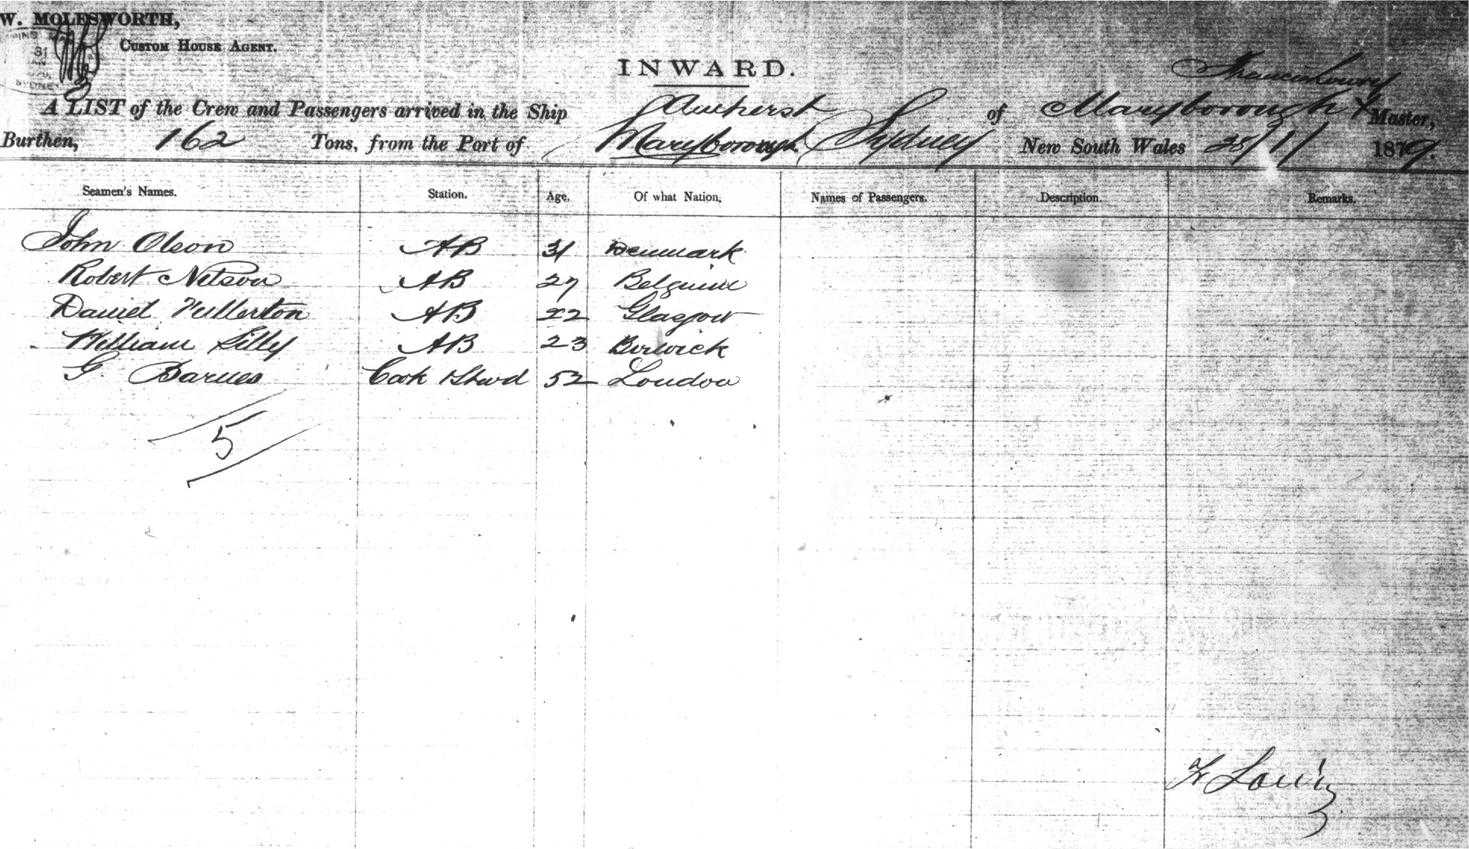 W. MOLESWORTH,
CUSTOM HOUSE AGENT.
INWARD.
A LIST of the Crew and Passengers arrived in the Ship Amherst of Maryborough Master,
Burthen, 162 Tons, from the Port of Maryborough Sydney New South Wales 28/1/ 1879.
Seamen's Names. Station. Age. Of what Nation, Names of Passengers. Description. Remarks.
John Olson AB 31 Denmark
Robert Nelson AB 27 Belguim
Daniel Fullerton AB 22 Glasgow
William Lilly AB 23 Berwick
G. Barnes Cook & Stwd 52 London
5